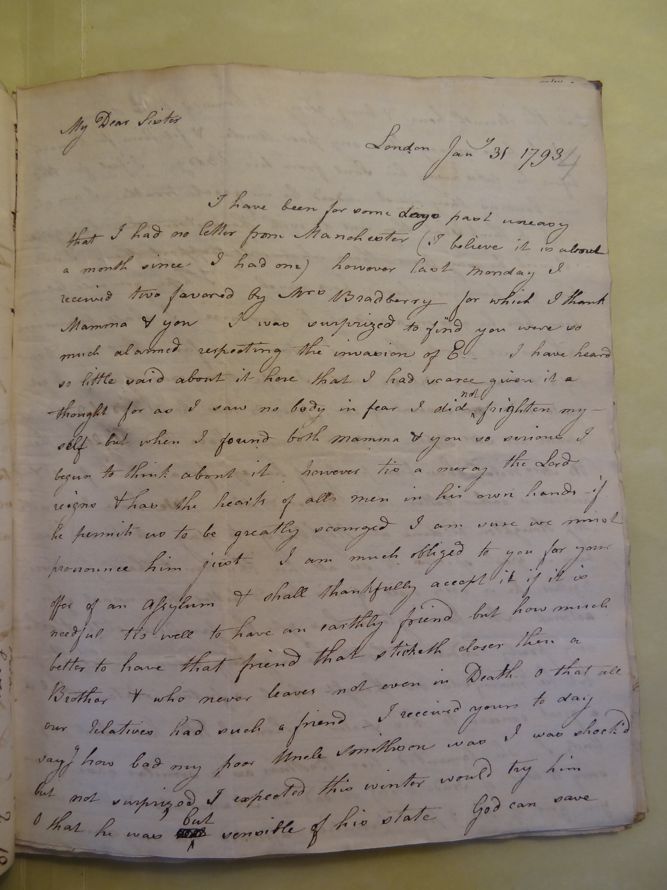 My Dear Sister
London Jany 31 1793 4
I have been for some days past uneasy
that I had no letter from Manchester (I believe it is about
a month since I had one) however last Monday I
received two favored by Mrs Bradberry for which I thank
Mamma & you I was surprized to find you were so
much alarmed respecting the invasion of E-- I have heard
so little said about it here that I had scarce given it a
thought for as I saw no body in fear I did not frighten my-
self but when I found both mamma & you so serious I
begun to think about it however tis a mercy the Lord
reigns & has the hearts of all men in his own hands if
he permits us to be greatly scourged I am sure we must
pronounce him just I am much obliged to you for your
offer of an Assylum & shall thankfully accept it if it is
needful tis well to have an earthly friend but how much
better to have that friend that sticketh closer then a
Brother & who never leaves not even in Death O that all
our relatives had such a friend - I received yours to day
sayg how bad my poor Uncle Smithson was I was shock'd
but not surprized I expected this winter would try him
O that he was but sensible of his state God can save